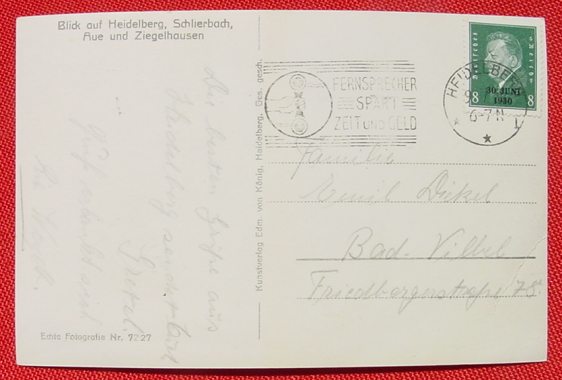 Blick auf Heidelberg, Schlierbach,
Aue und Ziegelhausen
Die besten Grüße aus
Heidelberg
Gretel
Echte Fotografie Nr. 7227
Kunstverlag Edm. von König, Heidelberg, Ges. gesch.
FERNSPRECHER
SPART
ZEIT UND GELD
HEIDELBERG
6-7 N
30. JUNI
1930
8 8
Familie
Emil Dickel
Bad-Vilbel
Friedbergerstraße 78.